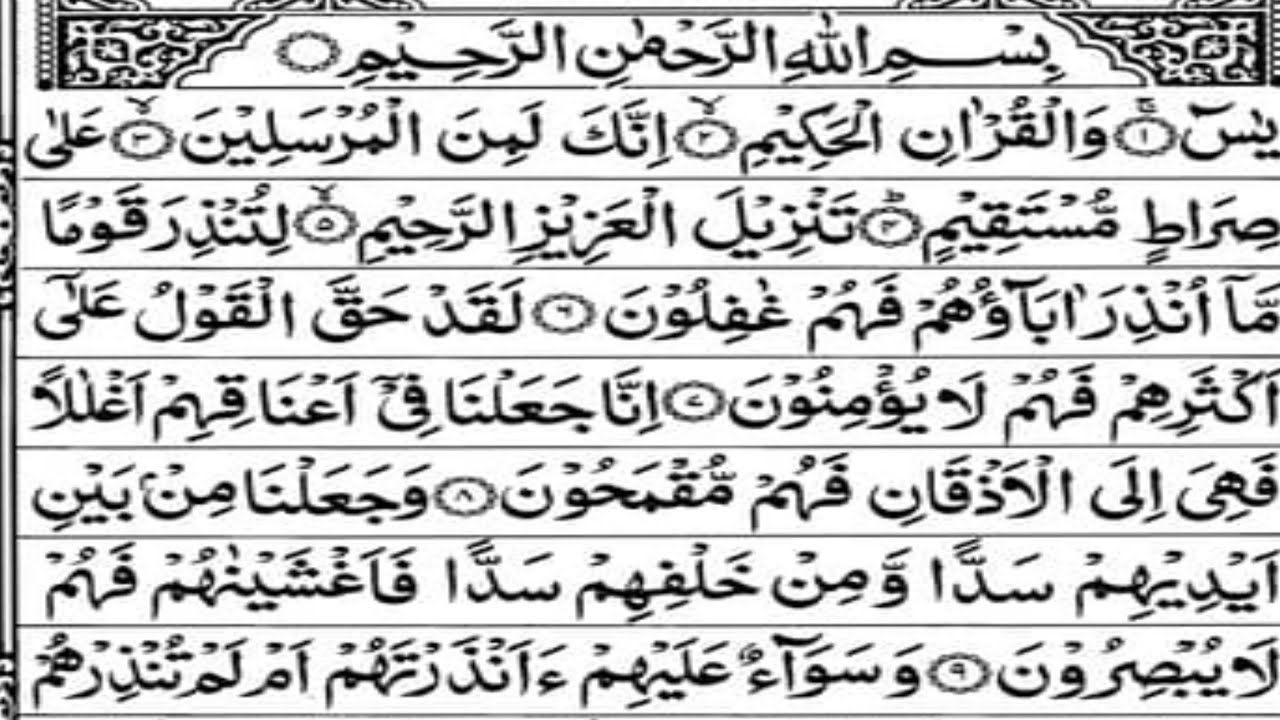 بِسْمِ اللّٰهِ الرَّحْمٰنِ الرَّحِيْمِ ۝
يٰسٓ ۝۱ۚ وَالْقُرْاٰنِ الْحَكِيْمِ ۝۲ۙ اِنَّكَ لَمِنَ الْمُرْسَلِيْنَ ۝۳ۙ عَلٰى
صِرَاطٍ مُّسْتَقِيْمٍ ۝۴ؕ تَنْزِيْلَ الْعَزِيْزِ الرَّحِيْمِ ۝۵ۙ لِتُنْذِرَ قَوْمًا
مَّاۤ اُنْذِرَ اٰبَآؤُهُمْ فَهُمْ غٰفِلُوْنَ ۝۶ لَقَدْ حَقَّ الْقَوْلُ عَلٰۤى
اَكْثَرِهِمْ فَهُمْ لَا يُؤْمِنُوْنَ ۝۷ اِنَّا جَعَلْنَا فِيْۤ اَعْنَاقِهِمْ اَغْلٰلًا
فَهِيَ اِلَى الْاَذْقَانِ فَهُمْ مُّقْمَحُوْنَ ۝۸ وَجَعَلْنَا مِنْۢ بَيْنِ
اَيْدِيْهِمْ سَدًّا وَّمِنْ خَلْفِهِمْ سَدًّا فَاَغْشَيْنٰهُمْ فَهُمْ
لَا يُبْصِرُوْنَ ۝۹ وَسَوَآءٌ عَلَيْهِمْ ءَاَنْذَرْتَهُمْ اَمْ لَمْ تُنْذِرْهُمْ